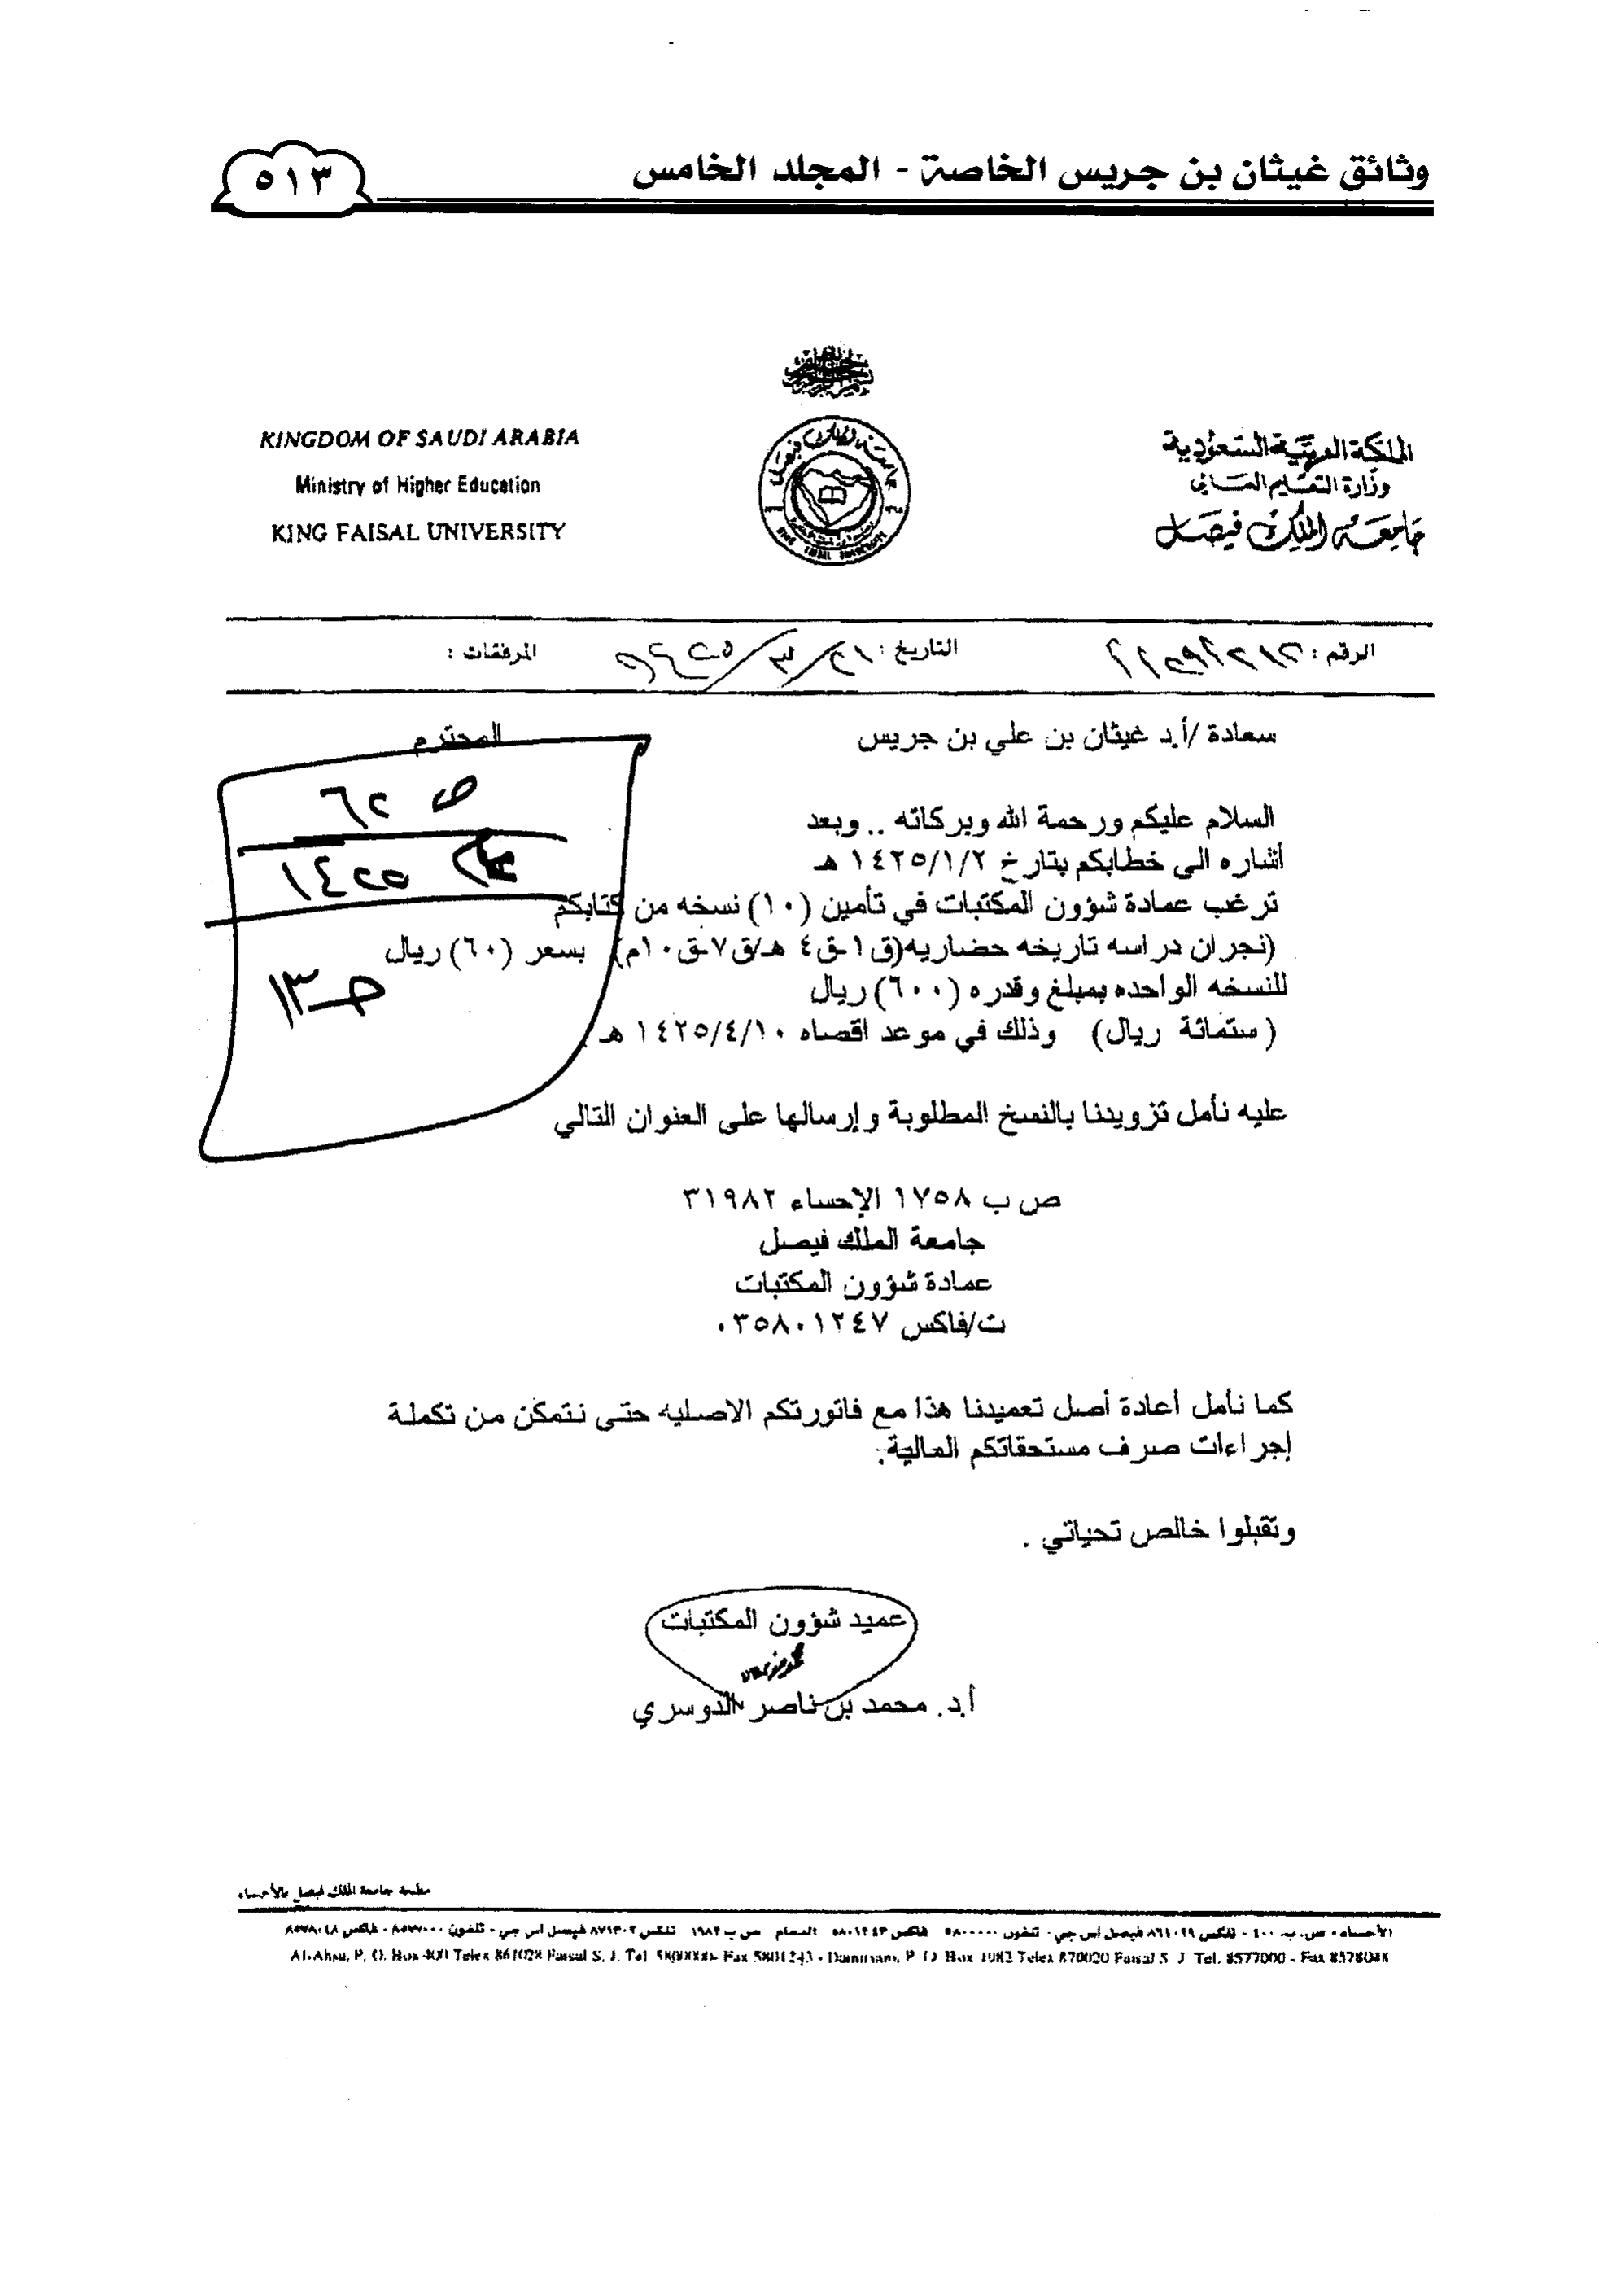 وثائق غيثان بن جريس الخاصة - المجلد الخامس
٥١٣
KINGDOM OF SAUDI ARABIA
Ministry of Higher Education
KING FAISAL UNIVERSITY
المملكة العربية السعودية
وزارة التعليم العالي
جامعة الملك فيصل
الرقم :
التاريخ : ٢١/٣/
المرفقات :
سعادة /أ.د غيثان بن علي بن جريس المحترم
ص ٦٢
١٤٢٥
حـ ١٣
السلام عليكم ورحمة الله وبركاته .. وبعد
أشاره الى خطابكم بتارخ ١٤٢٥/١/٢ هـ
ترغب عمادة شؤون المكتبات في تأمين (١٠) نسخه من كتابكم
(نجران دراسه تاريخه حضاريه(ق١-ق٤ هـ/ق٧-ق١٠م) بسعر (٦٠) ريال
للنسخه الواحده بمبلغ وقدره (٦٠٠) ريال
(ستمائة ريال) وذلك في موعد اقصاه ١٤٢٥/٤/١٠ هـ
عليه نأمل تزويدنا بالنسخ المطلوبة وإرسالها على العنوان التالي
ص ب ١٧٥٨ الإحساء ٣١٩٨٢
جامعة الملك فيصل
عمادة شؤون المكتبات
ت/فاكس ٠٣٥٨٠١٢٤٧
كما نأمل أعادة أصل تعميدنا هذا مع فاتورتكم الاصليه حتى نتمكن من تكملة
إجراءات صرف مستحقاتكم المالية.
وتقبلوا خالص تحياتي .
عميد شؤون المكتبات
أ.د. محمد بن ناصر الدوسري
مطبعة جامعة الملك فيصل بالأحساء
الأحساء - ص. ب. ٤٠٠ - تلكس فيصل اس جي - تلفون ٥٨٠٠٠٠٠ فاكس ٥٨٠١٢٤٣ الدمام ص ب ١٩٨٢ تلكس فيصل اس جي - تلفون ٨٥٧٧٠٠٠ - فاكس ٨٥٧٨٠٤٨
Al-Ahsa, P. O. Box 400 Telex Faisal S. J. Tel. Fax 5801243 - Dammam, P. O. Box 1982 Telex 870020 Faisal S. J. Tel. 8577000 - Fax 8578048